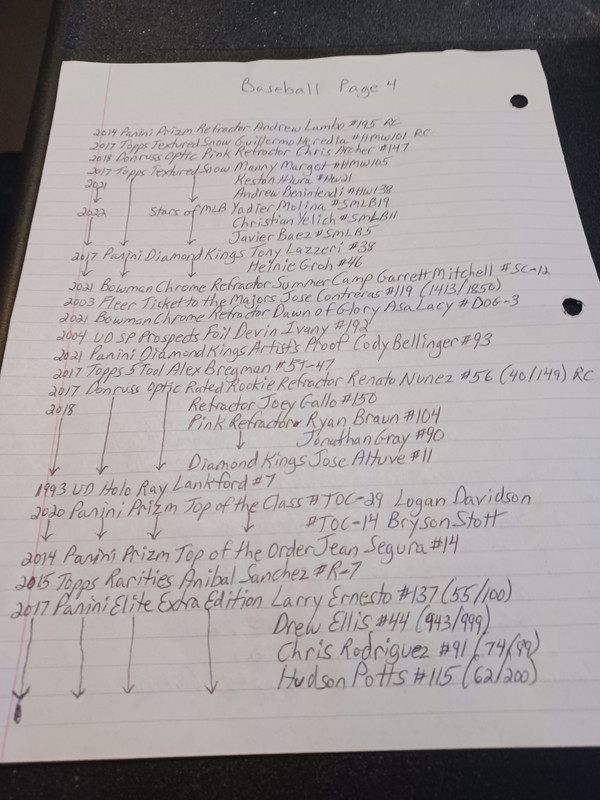 Baseball Page 4
2014 Panini Prizm Refractor Andrew Lambo #195 RC
2017 Topps Textured Snow Guillermo Heredia #HMW101 RC
2018 Donruss Optic Pink Refractor Chris Archer #147
2017 Topps Textured Snow Manny Margot #HMW105
2021 Keston Hiura #HW21
Andrew Benintendi #HW138
2022 Stars of MLB Yadier Molina #SMLB19
Christian Yelich #SMLB11
Javier Baez #SMLB5
2017 Panini Diamond Kings Tony Lazzeri #38
Heinie Groh #46
2021 Bowman Chrome Refractor Summer Camp Garrett Mitchell #SC-12
2003 Fleer Ticket to the Majors Jose Contreras #119 (1413/1850)
2021 Bowman Chrome Refractor Dawn of Glory Asa Lacy #DOG-3
2004 UD SP Prospects Foil Devin Ivany #192
2021 Panini Diamond Kings Artist's Proof Cody Bellinger #93
2017 Topps 5 Tool Alex Bregman #5T-47
2017 Donruss Optic Rated Rookie Refractor Renato Nunez #56 (40/149) RC
2018 Refractor Joey Gallo #150
Pink Refractor Ryan Braun #104
Jonathan Gray #90
Diamond Kings Jose Altuve #11
1993 UD Holo Ray Lankford #7
2020 Panini Prizm Top of the Class #TOC-29 Logan Davidson
#TOC-14 Bryson Stott
2014 Panini Prizm Top of the Order Jean Segura #14
2015 Topps Rarities Anibal Sanchez #R-7
2017 Panini Elite Extra Edition Larry Ernesto #137 (55/100)
Drew Ellis #44 (943/999)
Chris Rodriguez #91 (74/99)
Hudson Potts #115 (62/200)